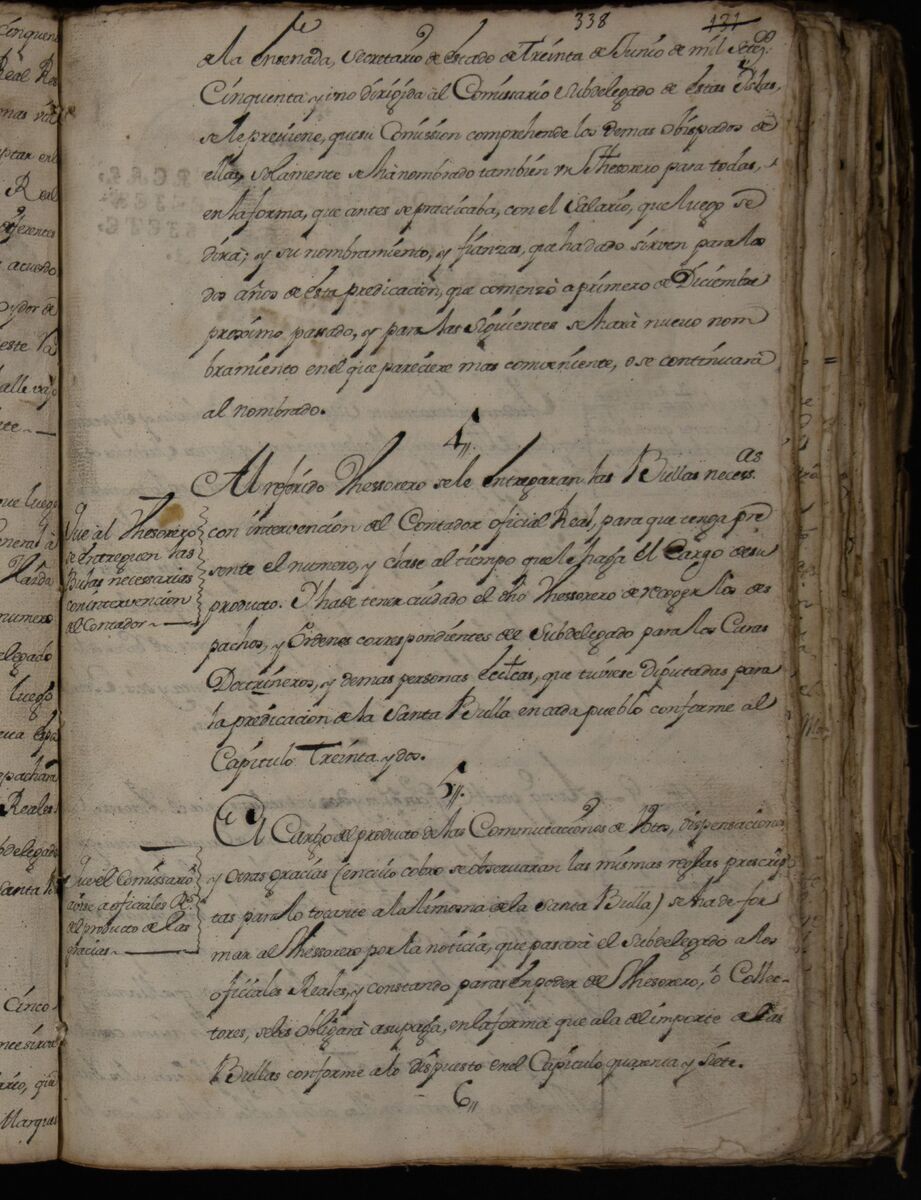 338 121
de la Ensenada, Secretario de Estado de Treinta de Junio de mil Setez.
Cinquenta y uno dirigida al Comissario Subdelegado de estas Yslas,
se le previene, que su Comission comprehende los demas Obispados de
ellas, solamente se hà nombrado tambien un Thesorero para todas,
en la forma, que antes se practicaba, con el Salario, que luego se
dirà; y su nombramiento, y fianzas, que ha dado sirven para los
dos años de esta predicacion, que comenzò a primero de Diciembre
proximo passado, y para las siguientes se harà nuevo nom
bramiento en el que pareciere mas conveniente, o se continuarà
al nombrado.
4,,
Al referido Thessorero se le entregaran las Bullas necess.as
con intervención del Contador oficial Real, para que tenga pre
sente el numero, y clase al tiempo que le haga el Cargo de su
producto. Y ha de tener cuidado el dho Thessorero de recoger los des
pachos, y Ordenes correspondientes del Subdelegado para los Curas
Doctrineros, y demas personas Eccas, que tubiere Diputadas para
la predicacion de la Santa Bulla en cada pueblo conforme al
Capitulo Treinta y dos.
Que al Thesorero
se entreguen las
Bulas necessarias
con intervencion
del Contador
5,,
El Cargo del producto de las Commutaciones de Votos, dispensacion
y otras gracias (en cuio cobro se observaran las mismas reglas prescrip
tas para lo tocante a la limosna de la Santa Bulla) se ha de for
mar al Thessorero por la noticia, que pasarà el Subdelegado a los
oficiales Reales, y constando paras en poder del Thesorero, ò Collec-
tores, se les obligarà a su paga, en la forma que a la del importe de las
Bullas conforme a lo dispuesto en el Capitulo quarenta y Siete.
Que el Comissario
avise a oficiales Rs.
del producto de las
gracias
6,,